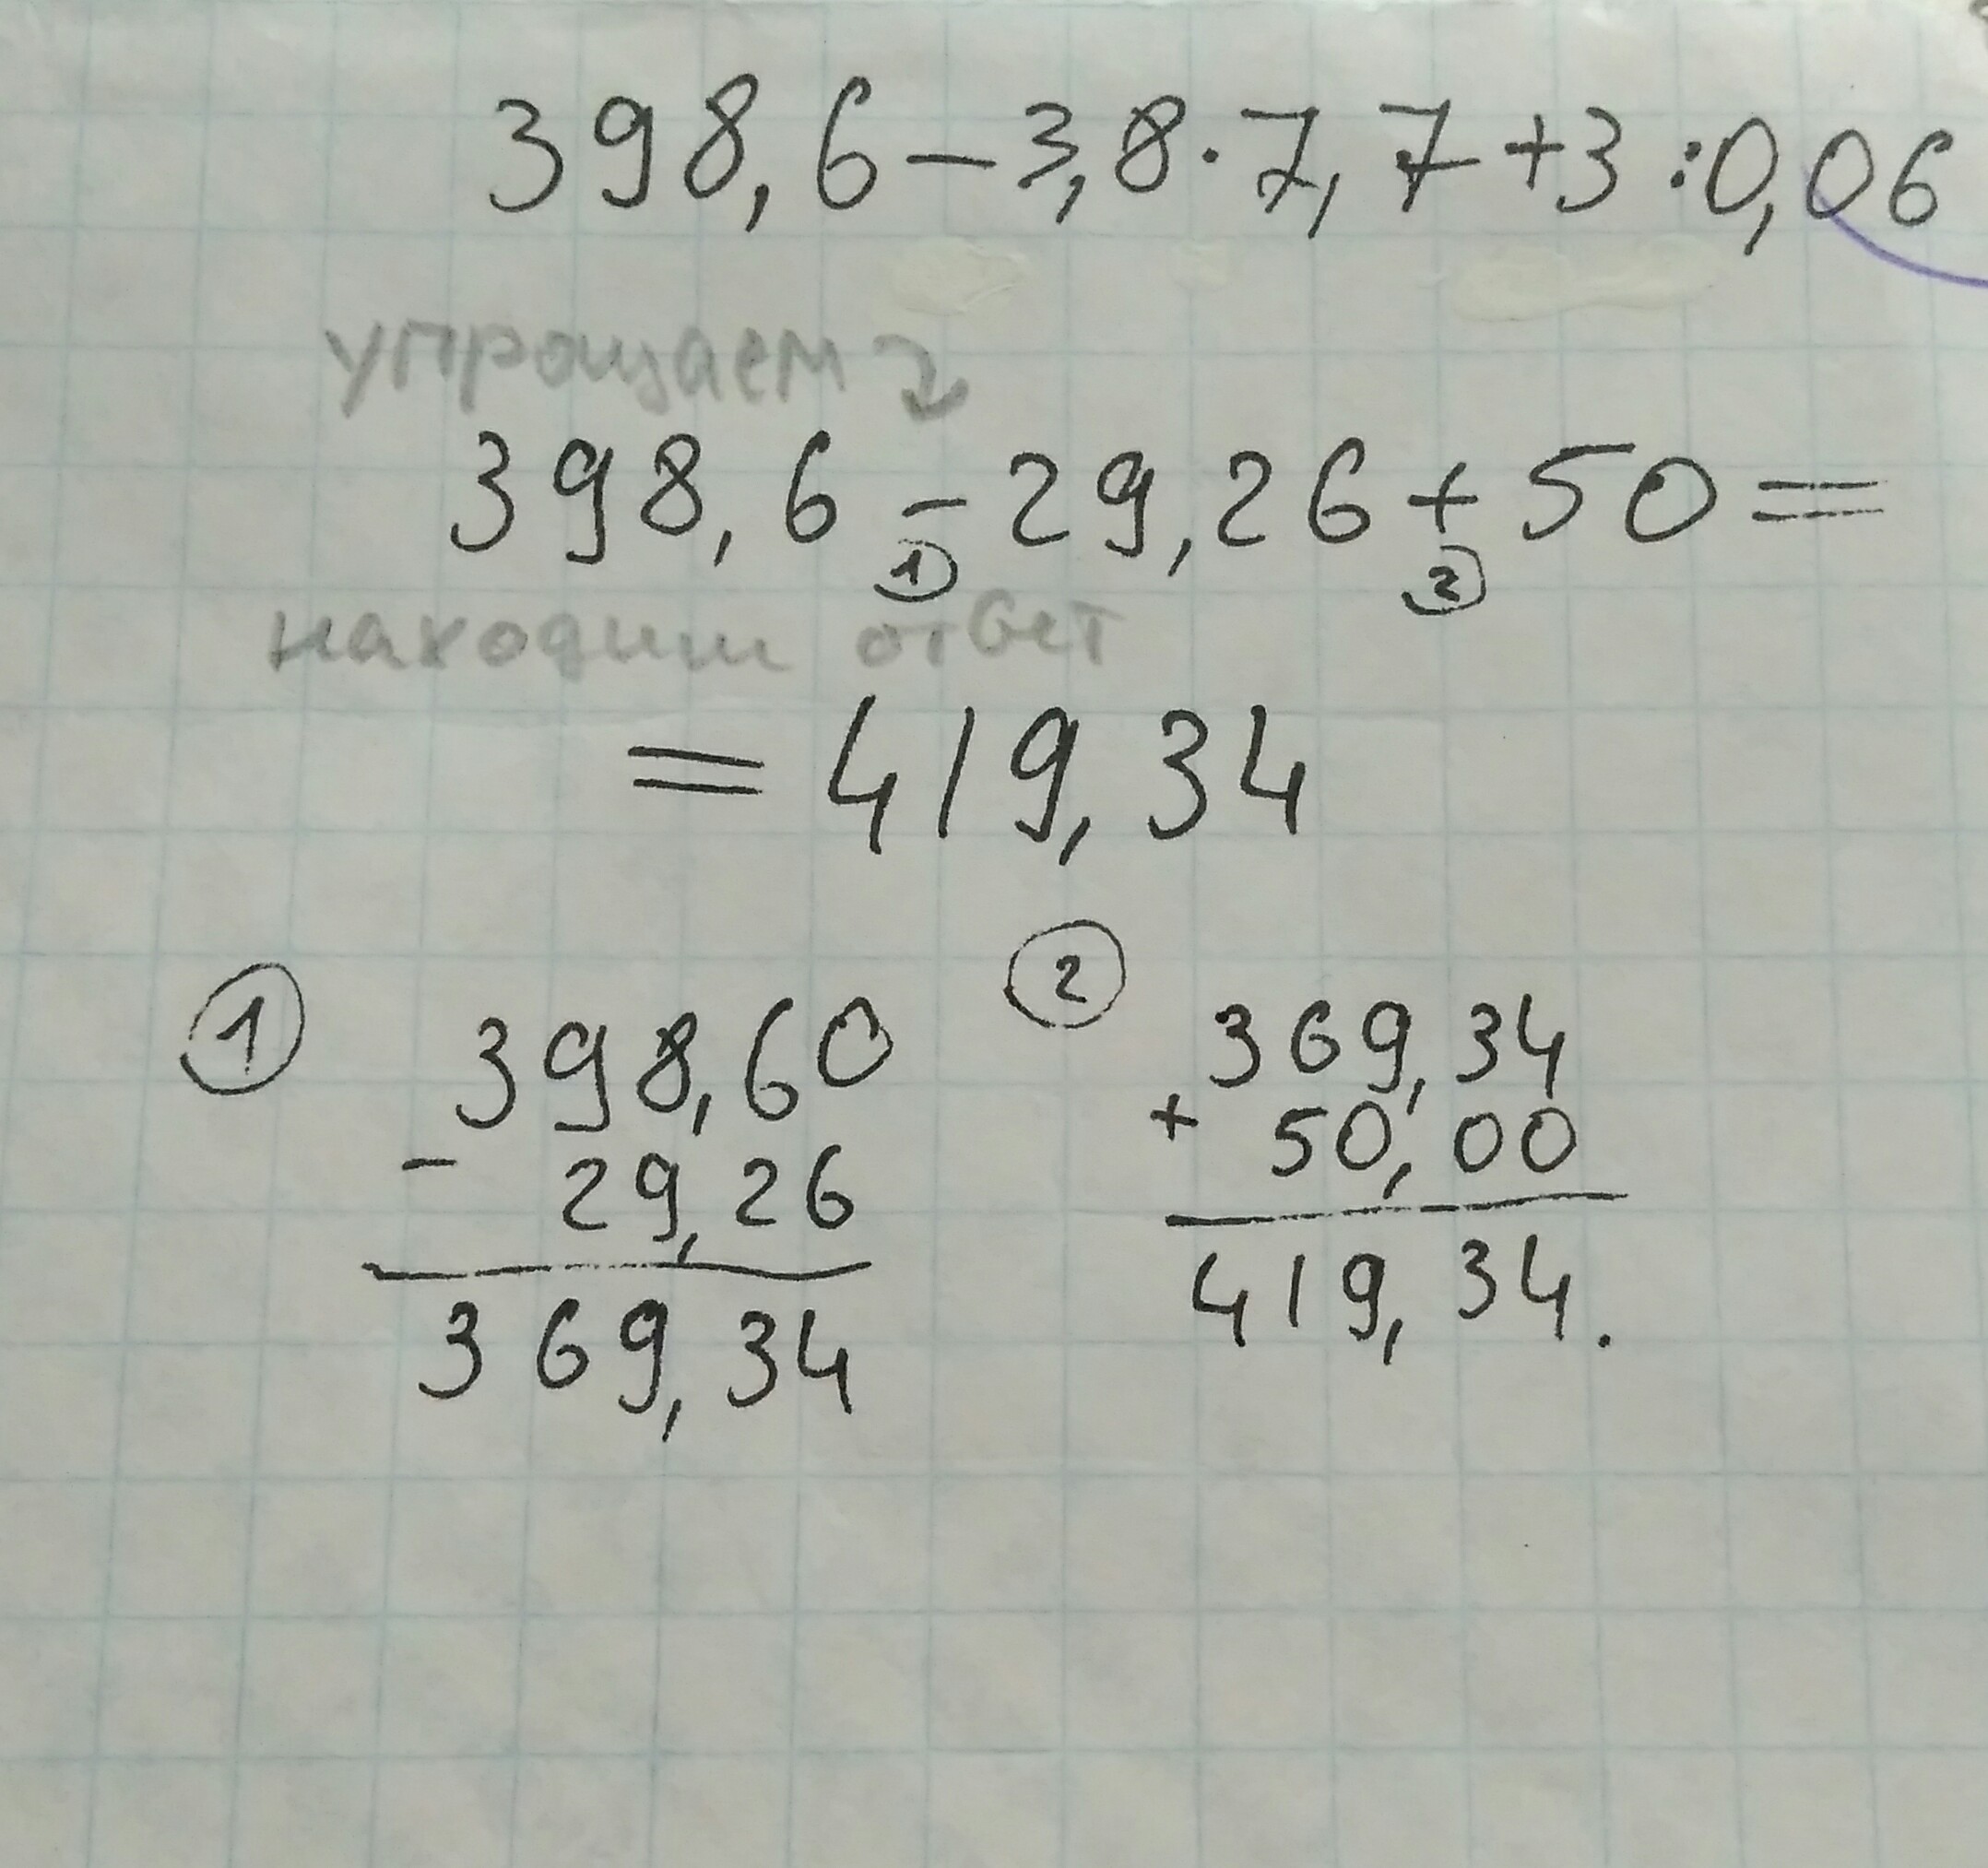 398,6-3,8·7,7+3:0,06
упрощаем
398,6-29,26+50=
1 2
находим ответ
=419,34
1
398,60
- 29,26
369,34
2
369,34
+ 50,00
419,34.